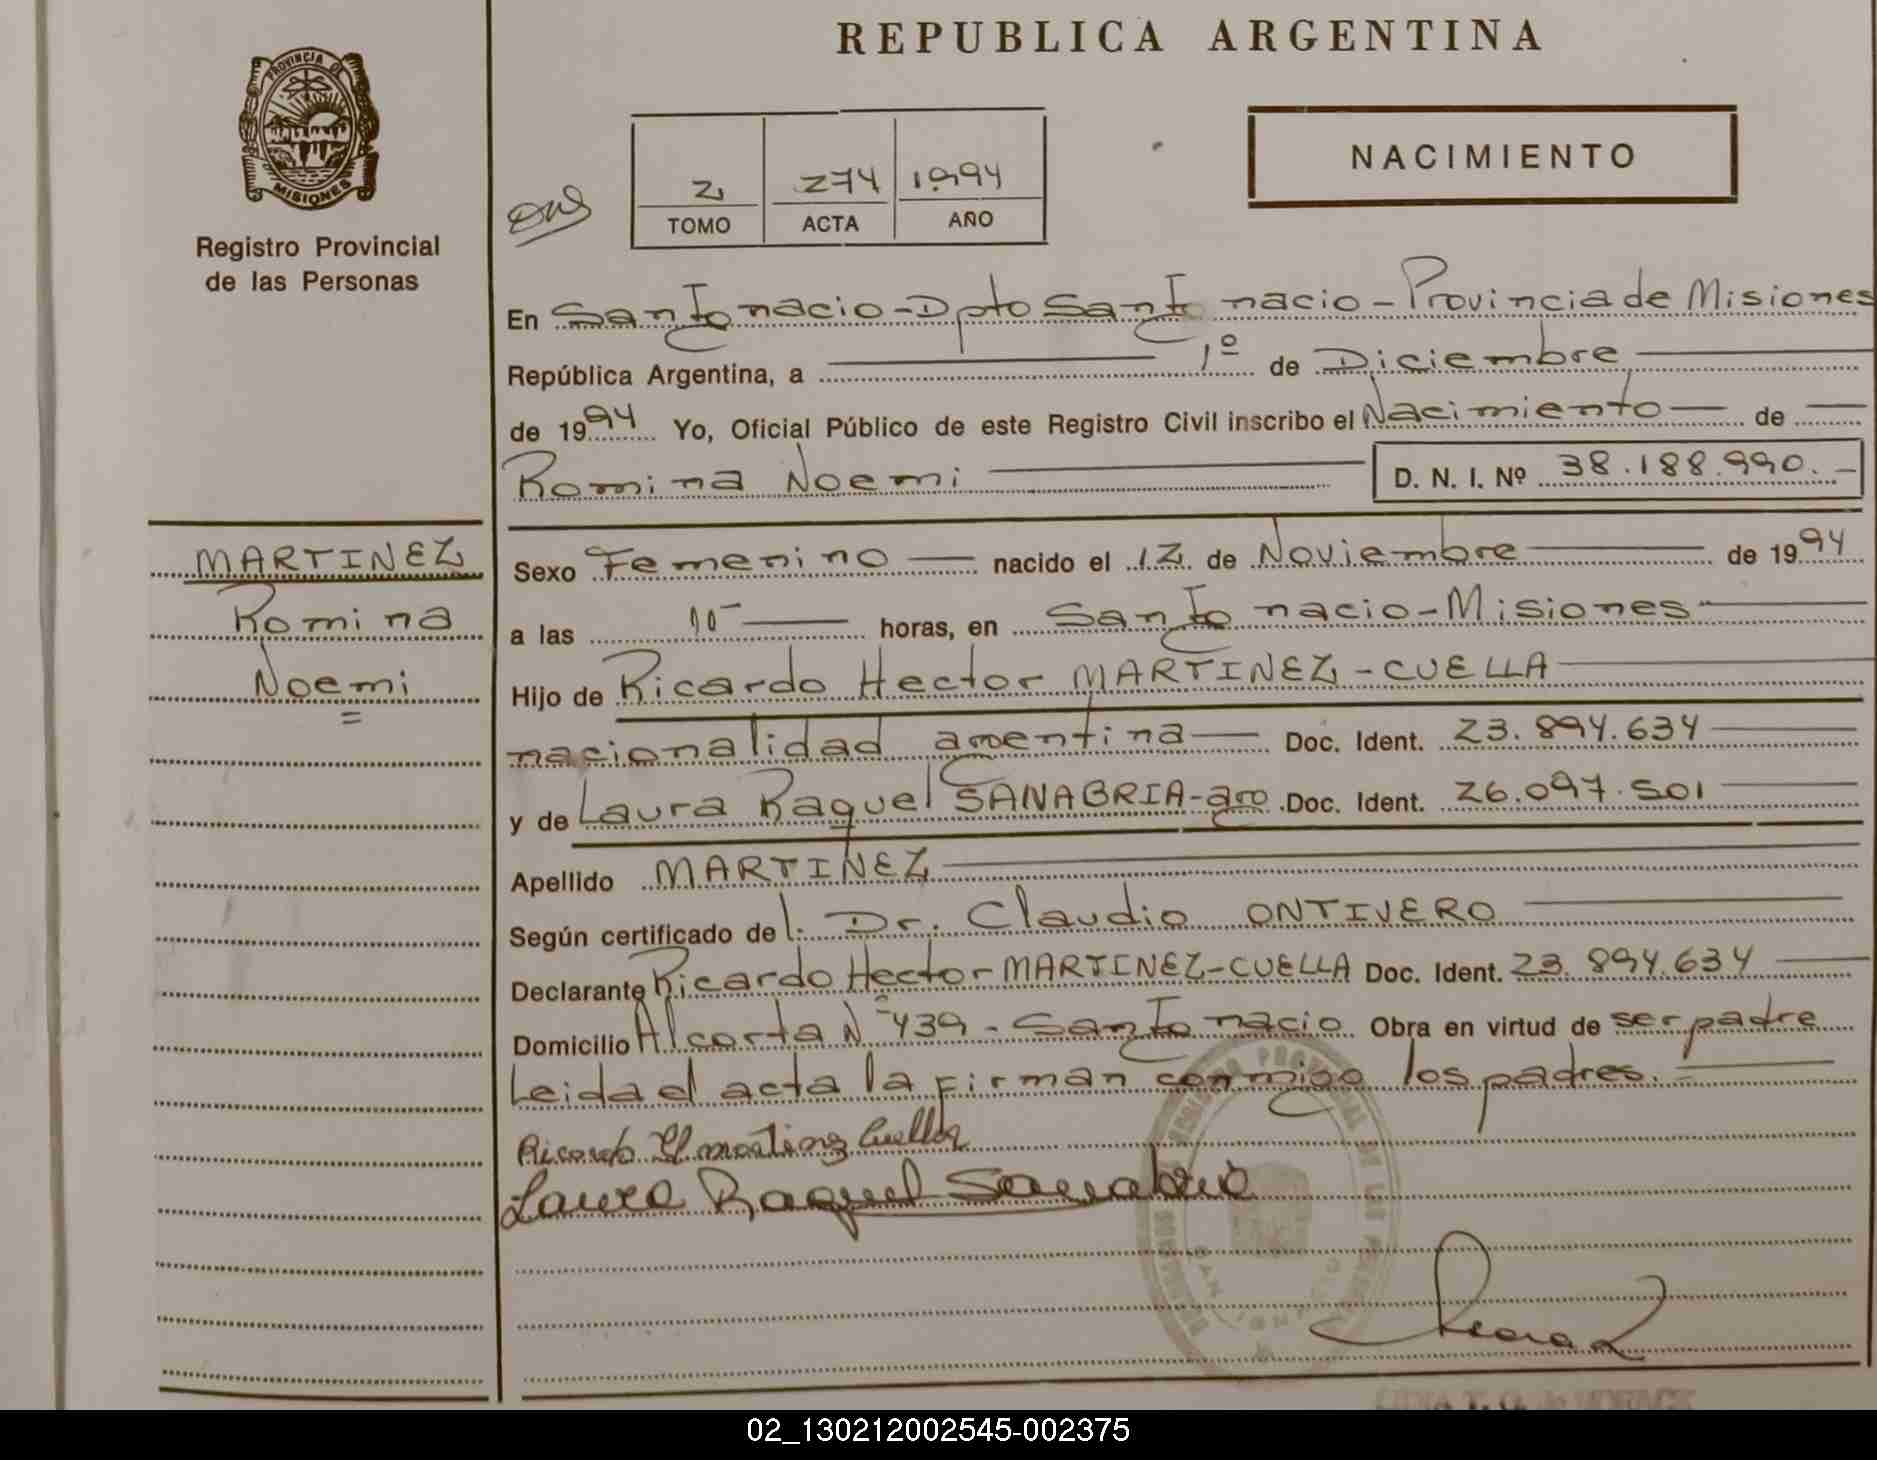 REPUBLICA ARGENTINA
PROVINCIA DE
MISIONES
Registro Provincial
de las Personas
2 274 1994
TOMO ACTA AÑO
NACIMIENTO
En San Ignacio - Dpto San Ignacio - Provincia de Misiones
República Argentina, a 1º de Diciembre
de 1994 Yo, Oficial Público de este Registro Civil inscribo el Nacimiento de
Romina Noemi D. N. I. Nº 38.188.990.-
MARTINEZ
Romina
Noemi
Sexo Femenino nacido el 12 de Noviembre de 1994
a las 10 horas, en San Ignacio - Misiones
Hijo de Ricardo Hector MARTINEZ - CUELLA
nacionalidad argentina Doc. Ident. 23.894.634
y de Laura Raquel SANABRIA - arg Doc. Ident. 26.097.501
Apellido MARTINEZ
Según certificado del. Dr. Claudio ONTIVERO
Declarante Ricardo Hector MARTINEZ - CUELLA Doc. Ident. 23.894.634
Domicilio Alcorta Nº 439 - San Ignacio Obra en virtud de ser padre
Leida el acta la firman conmigo los padres.=
Ricardo H Martinez Cuella
Laura Raquel Sanabria
02_130212002545-002375